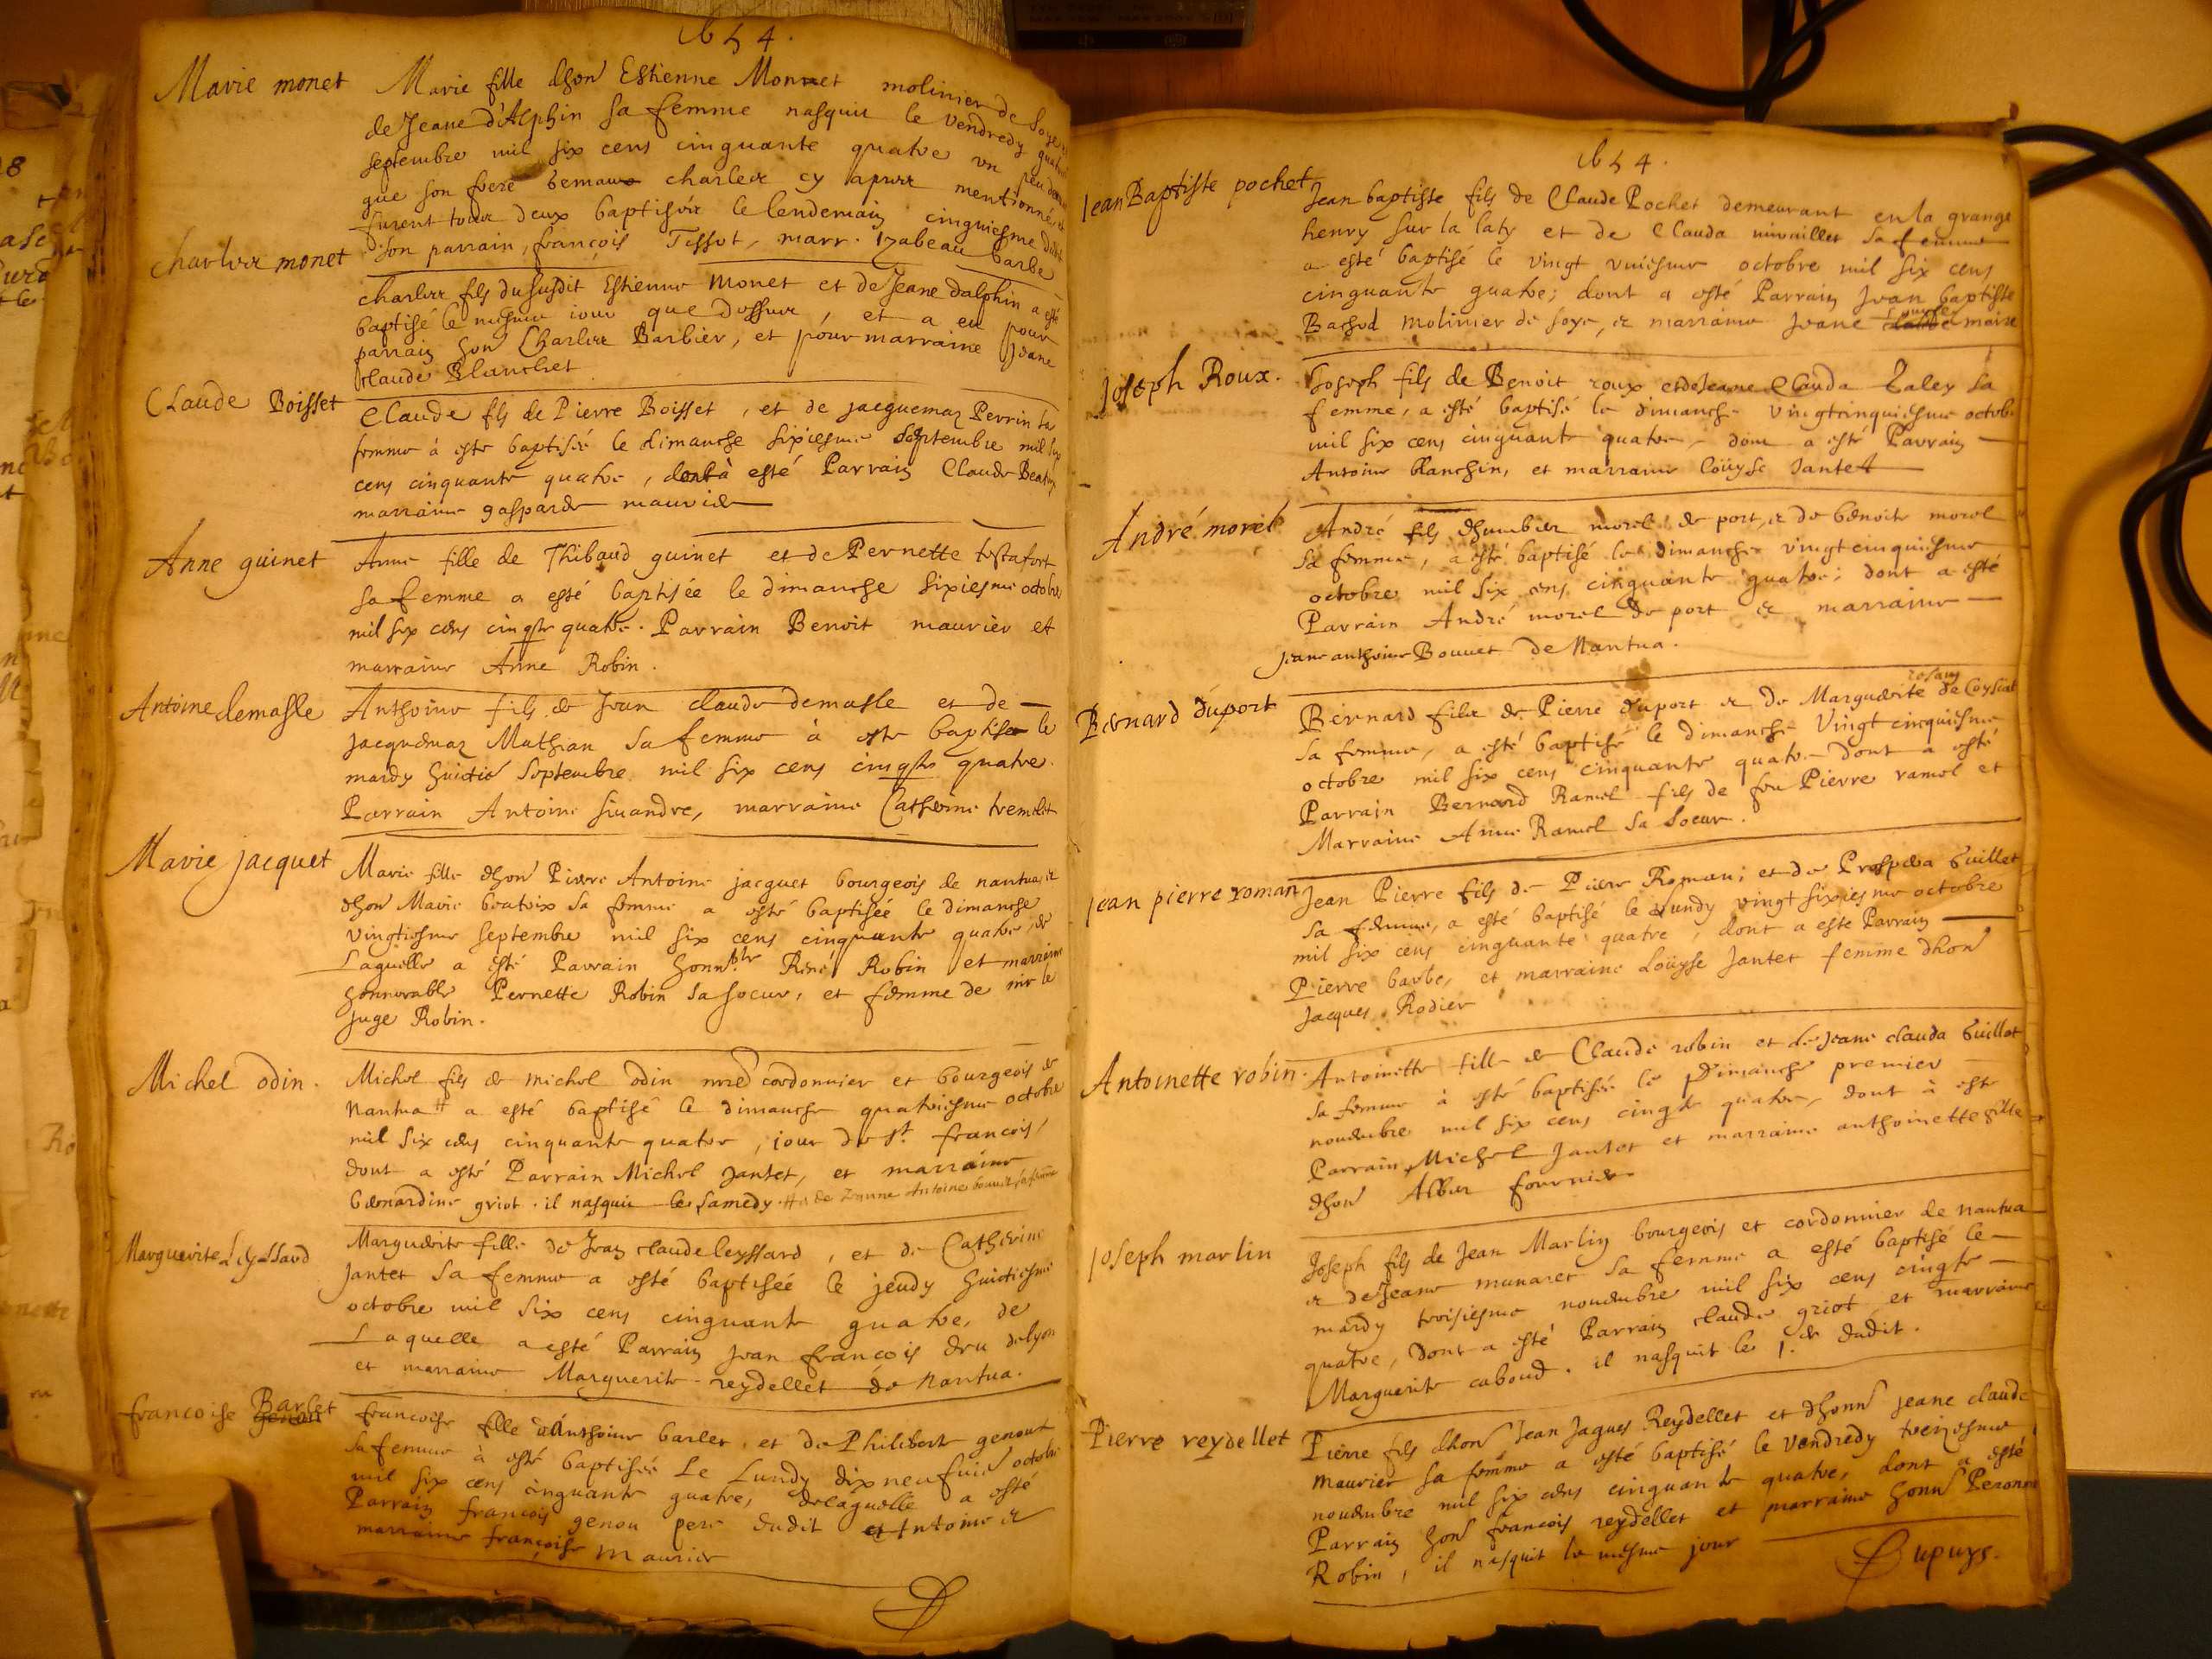 1654.
Marie monet
Marie fille dhon Estienne Monnet molinier de Soye
de Jeane d'Alphin sa femme nasquit le vendredy
septembre mil six cens cinquante quatre un peu
que son frere charler cy apres mentionné
furent tour deux baptisér le lendemain cinquiesme
Son parrain, françois Tissot, marr. Izabeau barbe
charler monet
charler fils du susdit Estienne Monet et de Jeane dalphin a esté
baptisé le mesme iour que dessus, et a eu pour
parrain hon Charler Barbier, et pour marraine Jeane
claude Blanchet
Claude Boisset
Claude fils de Pierre Boisset, et de jacquemaz Perrin sa
femme à este baptisée le dimanche sixiesme septembre mil six
cens cinquante quatre, dont à esté Parrain Claude
marraine gasparde mauvier
Anne guinet
Anne fille de Thibaud guinet et de Pernette testafort
sa femme a esté baptisée le dimanche sixiesme octobre
mil six cens cinqte quatre. Parrain Benoit maurier et
marraine Anne Robin.
Antoine demasle
Anthoine fils de Jean claude demasle et de
jacquemaz Mathian sa femme à este baptise le
mardy huictie septembre mil six cens cinqte quatre.
Parrain Antoine sivandre, marraine Catherine tremelet
Marie jacquet
Marie fille dhon Pierre Antoine jacquet bourgeois de nantua, et
dhon Marie beatrix sa femme a esté baptisée le dimanche
vingtiesme septembre mil six cens cinquante quatre, de
Laquelle a esté Parrain honnble René Robin et marraine
honnorable Pernette Robin sa soeur, et femme de mr le
Juge Robin.
Michel odin.
Michel fils de michel odin mre cordonnier et bourgeois de
Nantua # a esté baptisé le dimanche quatriesme octobre
mil six cens cinquante quatre, iour de st. francois,
dont a esté Parrain Michel Jantet, et marraine
bernardine griot. il nasquit le samedy. # et de Jeanne Antoine bouvet sa femme
Marguerite Leyssard
Marguerite fille de Jean claude leyssard, et de Catherine
Jantet sa femme a esté baptisée le jeudy huictiesme
octobre mil six cens cinquante quatre, de
Laquelle a esté Parrain Jean francois dru de lyon
et marraine Marguerite reydellet de Nantua.
francoise Barlet
francoise fille d'Anthoine barlet, et de Philiberte genout
sa femme à esté baptisée Le Lundy dixneufuie octobre
mil six cens cinquante quatre, de laquelle a esté
Parrain françois genou pere dudit Antoine et
marraine françoise maurier
D
1654.
Jean Baptiste pochet
Jean baptiste fils de Claude Pochet demeurant en la grange
henry sur la laty et de Clauda sa femme
a esté baptisé le vingt uniesme octobre mil six cens
cinquante quatre; dont a esté Parrain Jean baptiste
Bachod molinier de soye, et marraine Jeane Louyse moire
Joseph Roux.
Joseph fils de Benoit roux et de Jeane Clauda Taley sa
femme, a esté baptisé le dimanche vingtcinquiesme octob.
mil six cens cinquante quatre, dont a esté Parrain
Antoine blanchin, et marraine Loüyse Jantet
André morel
André fils dhumbert morel de port, et de benoite morel
sa femme, a esté baptisé le dimanche vingtcinquiesme
octobre mil six cens cinquante quatre; dont a esté
Parrain André morel de port et marraine
Jeane anthoine Bouvet de Nantua.
Bernard duport
Bernard filz de Pierre duport et de Marguerite rosaing de Coysiat
sa femme, a esté baptisé le dimanche Vingt cinquiesme
octobre mil six cens cinquante quatre dont a esté
Parrain Bernard Ramel fils de feu Pierre ramel et
Marraine Anne Ramel sa soeur.
jean pierre roman
Jean Pierre fils de Pierre Roman; et de Prospera Guillet
sa femme, a esté baptisé le Lundy vingt sixiesme octobre
mil six cens cinquante quatre, dont a este Parrain
Pierre barbe, et marraine Loüyse Jantet femme dhon
Jacques Rodier
Antoinette robin.
Antoinette fille de Claude robin et de Jeane clauda Guillot
sa femme à esté baptisée le Dimanche premier
nouembre mil six cens cinqte quatre, dont à este
Parrain Michel Jantet et marraine anthoinette fille
dhon Alber fournier
Joseph marlin
Joseph fils de Jean Marlin bourgeois et cordonnier de nantua
et de Jeane munaret sa femme a esté baptisé le
mardy troisiesme nouembre mil six cens cinqte
quatre, dont a esté Parrain claude griot et marraine
Marguerite caboud. il nasquit le 1. de dudit.
Pierre reydellet
Pierre fils dhon Jean Jaques Reydellet et dhonn jeane claude
maurier sa femme a esté baptisé le vendredy treiziesme
nouembre mil six cens cinquante quatre, dont a esté
Parrain hon francois reydellet et marraine honn Peronne
Robin, il nasquit le mesme jour
Dupuys.